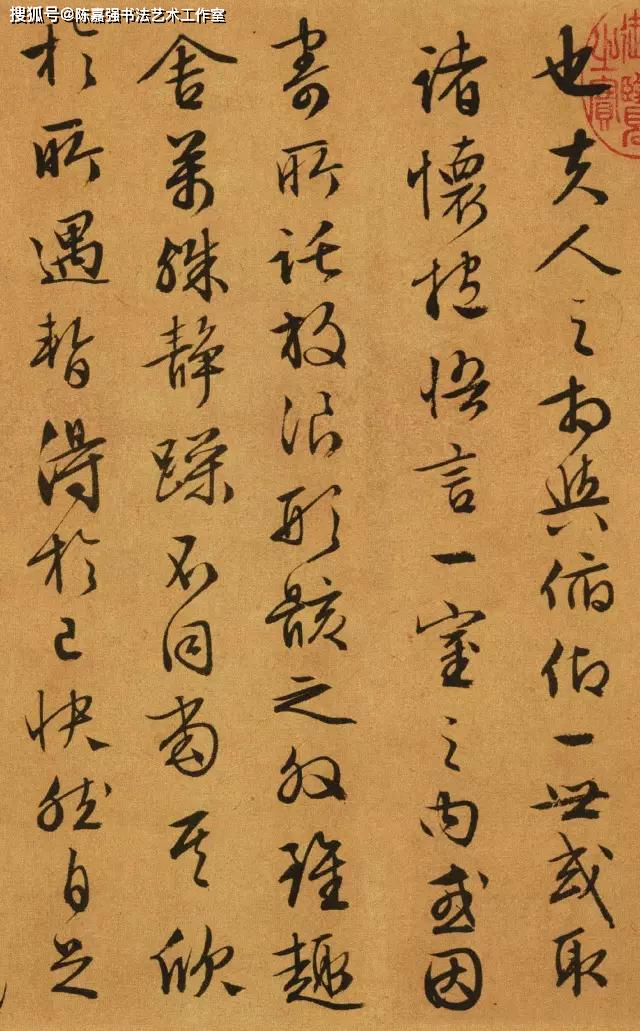 搜狐号@陈嘉强书法艺术工作室
御覽之寶
也夫人之相與俯仰一世或取
諸懷抱悟言一室之內或因
寄所託放浪形骸之外雖趣
舍萬殊靜躁不同當其欣
於所遇暫得於己快然自足